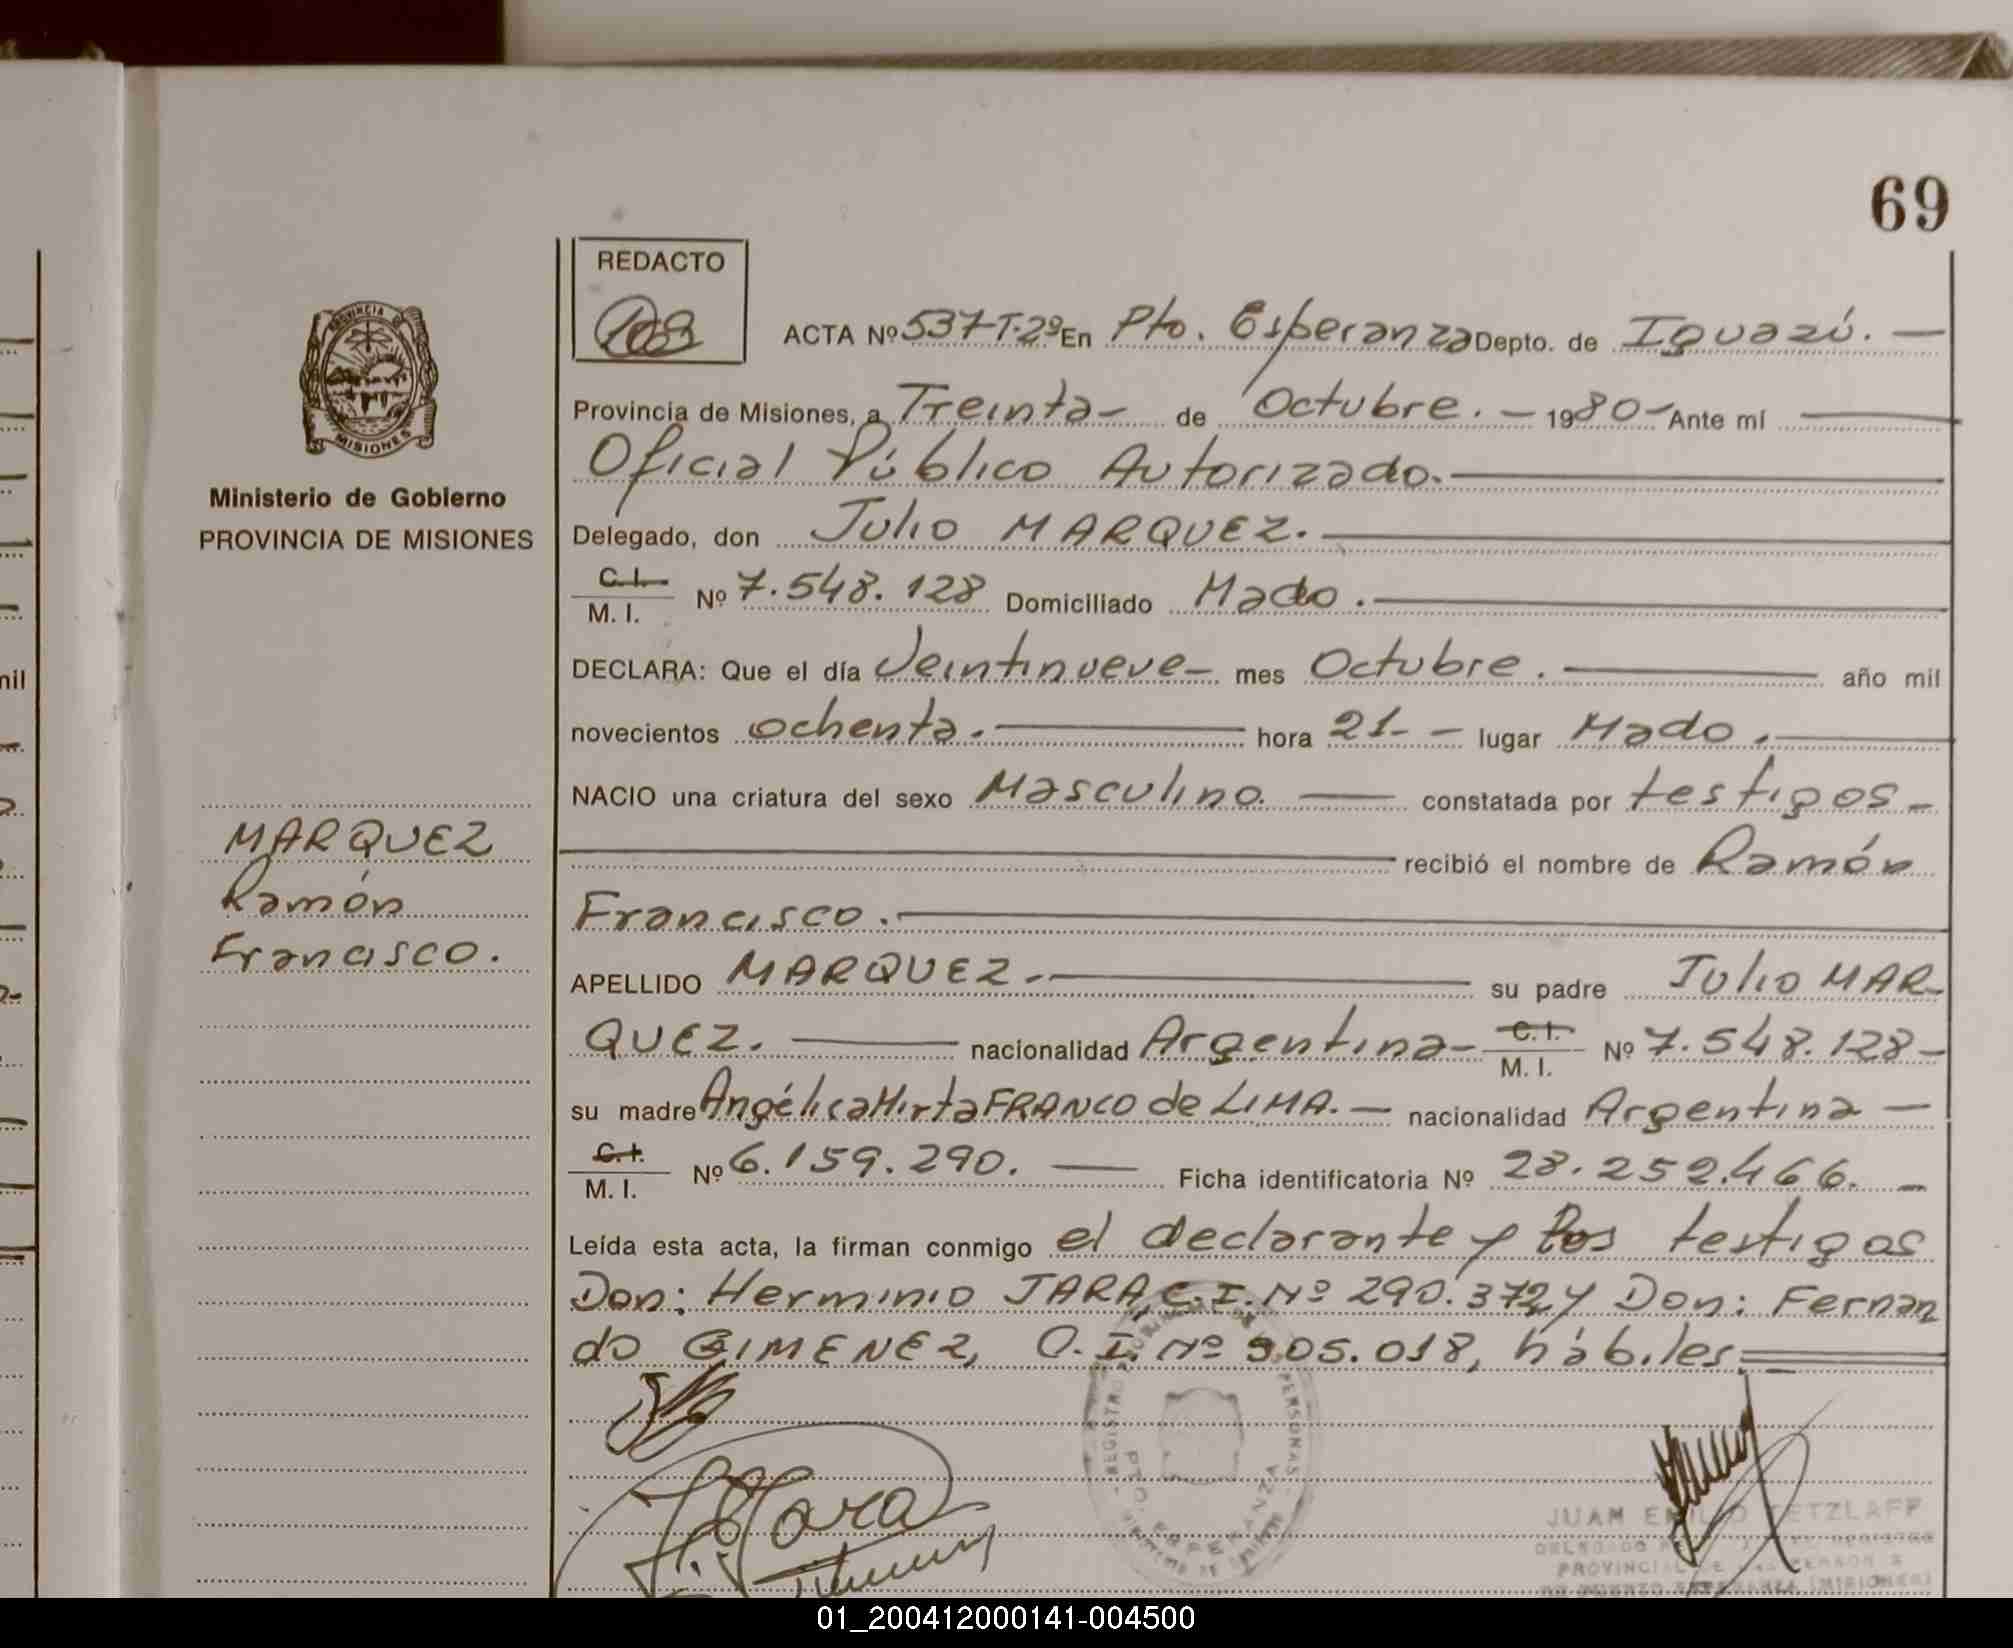 69
REDACTO
ACTA Nº 537-T-2º En Pto. Esperanza Depto. de Iguazú. —
Provincia de Misiones, a Treinta- de Octubre. — 1980- Ante mí
Oficial Público Autorizado.
Delegado, don Julio MARQUEZ.
C. I.
M. I. Nº 7.548.128 Domiciliado Mado.
DECLARA: Que el día Veintinueve- mes Octubre. año mil
novecientos ochenta. hora 21.- lugar Mado.
NACIO una criatura del sexo Masculino. constatada por testigos-
recibió el nombre de Ramón
Francisco.
APELLIDO MARQUEZ. su padre Julio MAR-
QUEZ. nacionalidad Argentina- C. I.
M. I. Nº 7.548.128-
su madre Angélica Mirta FRANCO de LIMA. — nacionalidad Argentina —
C. I.
M. I. Nº 6.159.290. — Ficha identificatoria Nº 28.252.466. -
Leída esta acta, la firman conmigo el declarante y los testigos
Don: Herminio JARA, C.I. Nº 290.372 y Don: Fernan
do GIMENEZ, C.I. Nº 905.018, hábiles.
PROVINCIA DE
MISIONES
Ministerio de Gobierno
PROVINCIA DE MISIONES
MARQUEZ
Ramón
Francisco.
mil
Jara
REGISTRO PERSONAS
PTO. ESPERANZA
JUAN EMILIO RETZLAFF
DELEGADO
PROVINCIAL DE LAS PERSONAS
PUERTO ESPERANZA (MISIONES)
01_200412000141-004500